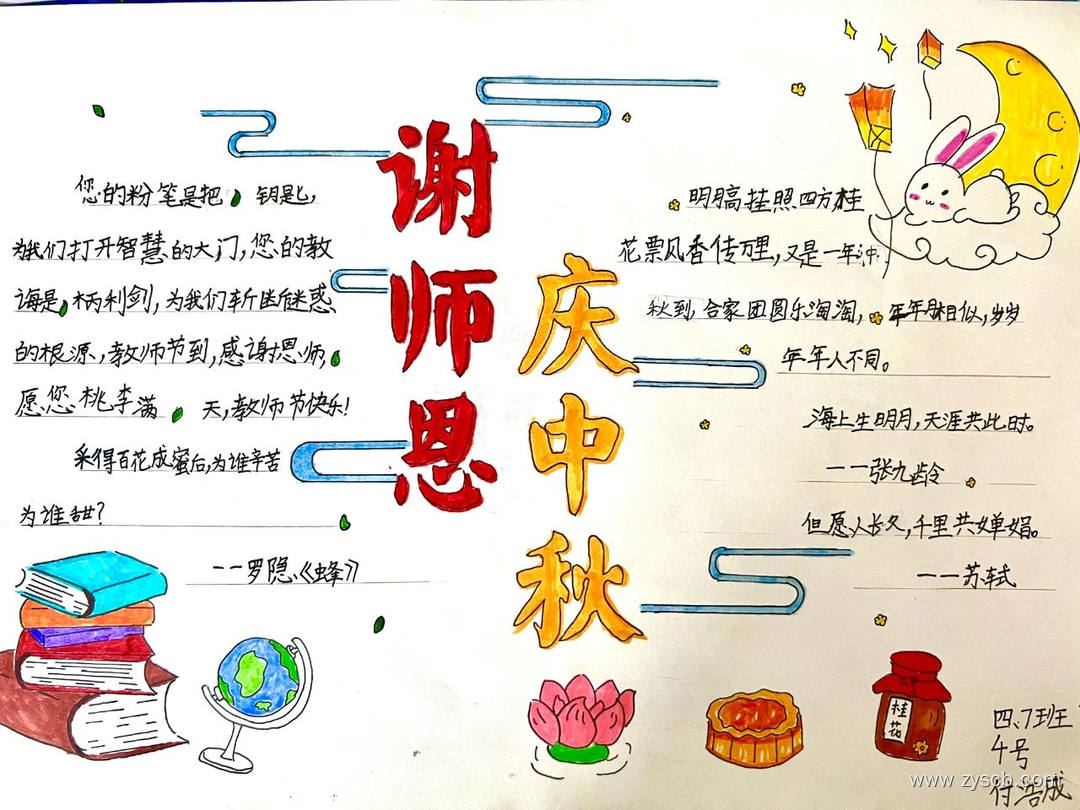 谢师恩
庆中秋
您的粉笔是把 钥匙,
为我们打开智慧的大门,您的教
诲是 柄利剑,为我们斩断迷惑
的根源,教师节到,感谢恩师,
愿您桃李满 天,教师节快乐!
采得百花成蜜后,为谁辛苦
为谁甜?
--罗隐《蜂》
明月高挂照四方,桂
花票风香传万里,又是一年中
秋到,合家团圆乐淘淘,年年月相似,岁岁
年年人不同。
海上生明月,天涯共此时。
--张九龄
但愿人长久,千里共婵娟。
--苏轼
桂花
四、7班
4号
付浩成
www.zyscb.com